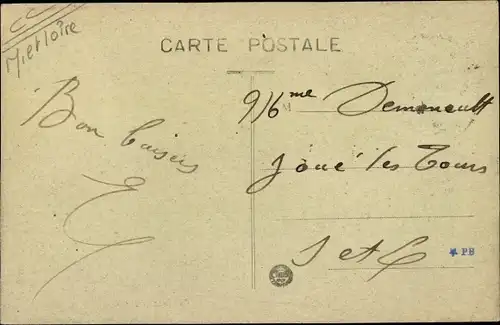 M et Loire
CARTE POSTALE
Bon baisers
Mme Demenault
Joué les Tours
I et L
PB